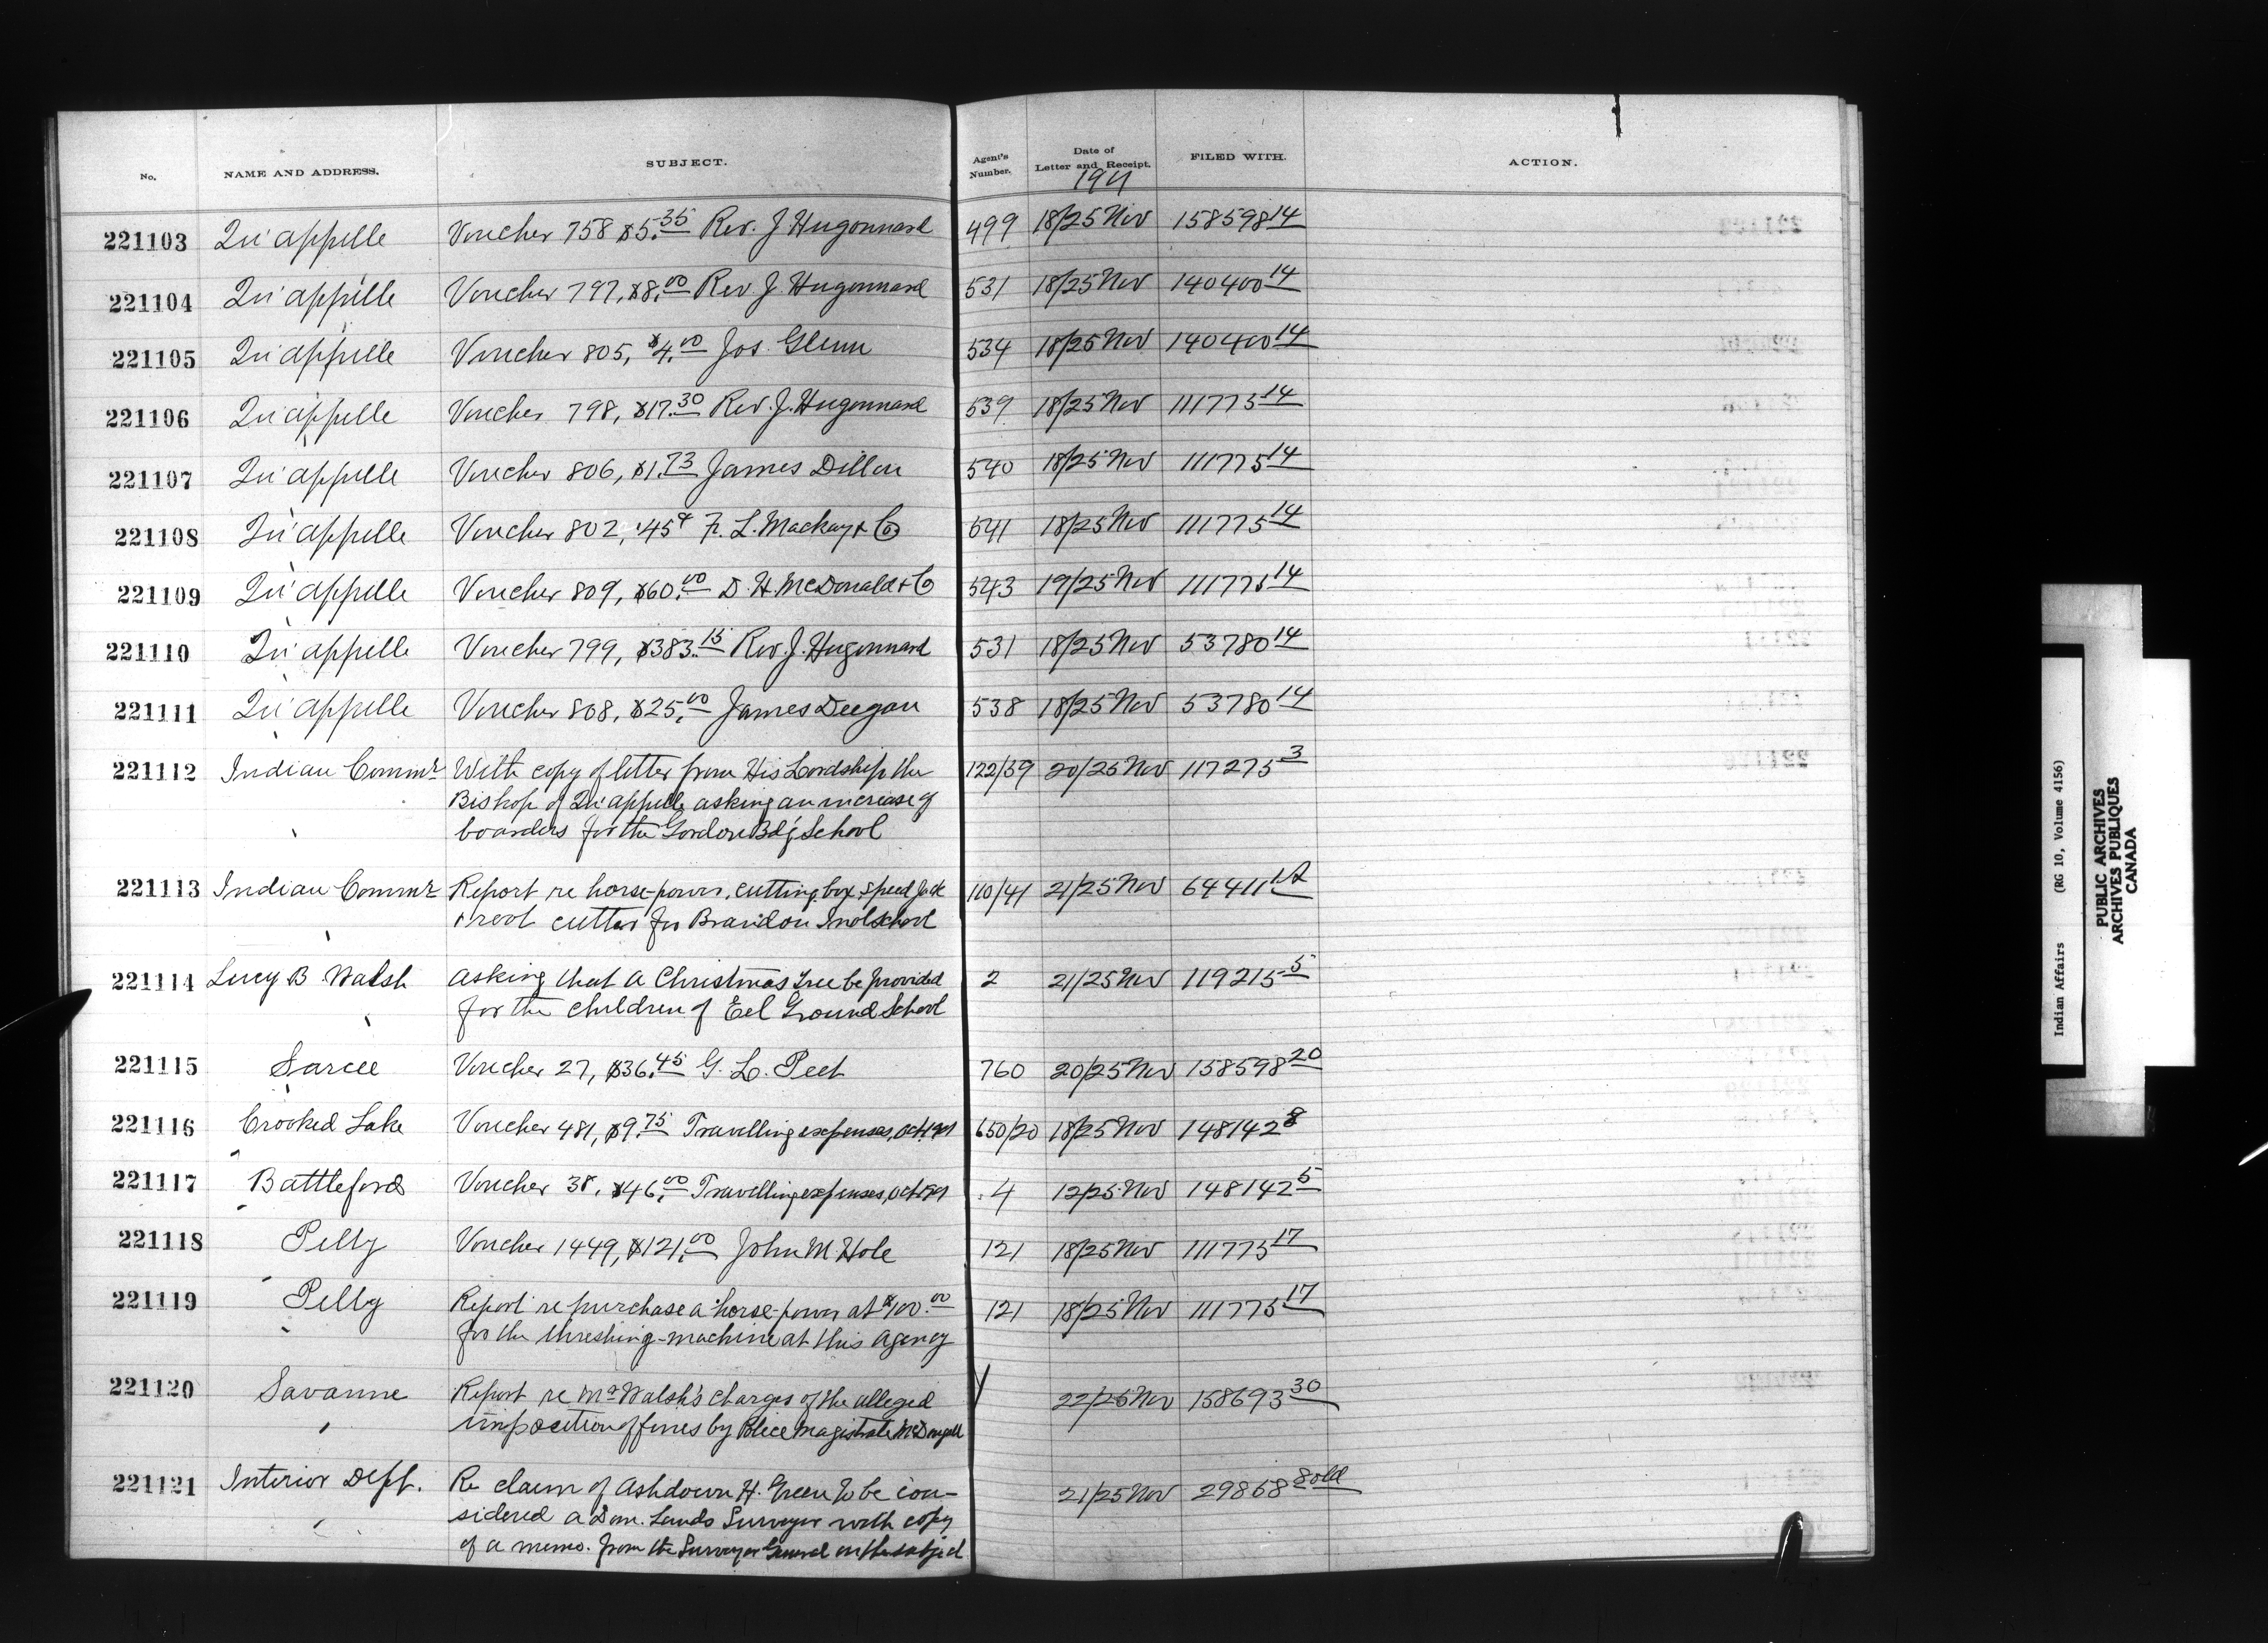 No. NAME AND ADDRESS. SUBJECT. Agent's Number. Date of Letter and Receipt. FILED WITH. ACTION.
1901
221103 Qu'appelle Voucher 758 $5.35 Rev. J Hugonnard 499 18/25 Nov 158598 14
221104 Qu'appelle Voucher 797, $8.00 Rev. J. Hugonnard 531 18/25 Nov 140400 14
221105 Qu'appelle Voucher 805, $4.00 Jos. Glenn 534 18/25 Nov 140400 14
221106 Qu'appelle Voucher 798, $17.30 Rev. J. Hugonnard 539 18/25 Nov 111775 14
221107 Qu'appelle Voucher 806, $1.73 James Dillon 540 18/25 Nov 111775 14
221108 Qu'appelle Voucher 802, .45¢ F. L. Mackay & Co 541 18/25 Nov 111775 14
221109 Qu'appelle Voucher 809, $60.00 D. H. McDonald & Co 543 19/25 Nov 111775 14
221110 Qu'appelle Voucher 799, $383.15 Rev. J. Hugonnard 531 18/25 Nov 53780 14
221111 Qu'appelle Voucher 808, $25.00 James Deegan 538 18/25 Nov 53780 14
221112 Indian Commr With copy of letter from His Lordship the 122/59 20/25 Nov 117275 3
Bishop of Qu'appelle asking an increase of
boarders for the Gordon Bdg School
221113 Indian Commr Report re horse-power, cutting box, speed Jack 110/41 21/25 Nov 64411
& root cutter for Brandon Indl School
221114 Lucy B Walsh Asking that a Christmas tree be provided 2 21/25 Nov 119215 5
for the children of Eel Ground School
221115 Sarcee Voucher 27, $36.45 G. L. Peet 760 20/25 Nov 158598 20
221116 Crooked Lake Voucher 481, $9.75 Travelling expenses, Oct 1901 650/20 18/25 Nov 148142 8
221117 Battleford Voucher 38, $46.00 Travelling expenses, Oct 1901 4 12/25 Nov 148142 5
221118 Pelly Voucher 1449, $121.00 John M. Hole 121 18/25 Nov 111775 17
221119 Pelly Report re purchase a horse-power at $100.00 121 18/25 Nov 111775 17
for the threshing-machine at this Agency
221120 Savanne Report re Mr Walsh's charges of the alleged 22/25 Nov 158693 30
imposition of fines by Police Magistrate McDougall
221121 Interior Dept. Re claim of Ashdown H. Green to be con- 21/25 Nov 29868 8 old
sidered a Dom. Lands Surveyor with copy
of a memo. from the Surveyor General on the subject
Indian Affairs (RG 10, Volume 4156)
PUBLIC ARCHIVES
ARCHIVES PUBLIQUES
CANADA